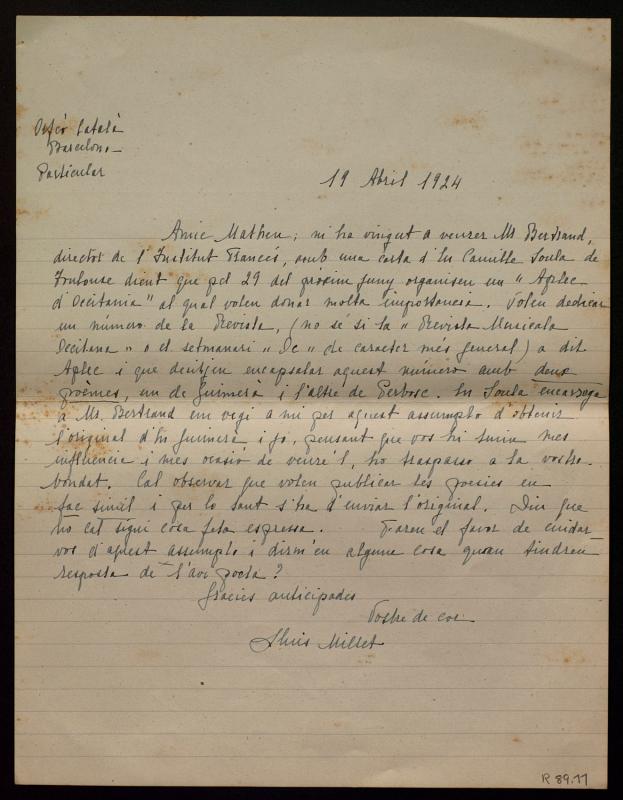 Orfeó Català
Barcelona
Particular
19 Abril 1924
Amic Matheu; m'ha vingut a veurer Mr Bertrand,
director de l'Institut Francés, amb una carta d'En Camille Soula de
Toulouse dient que pel 29 del pròxim Juny organisen un "Aplec
d'Occitania" al qual volen donar molta importancia. Volen dedicar
un número de la Revista, (no sé si la "Revista Musicala
Occitana" o el setmanari "Oc" de caracter més general) a dit
Aplec i que desitgen encapsalar aquest número amb deux
poèmes, un de Guimerà i l'altre de Perbosc. En Soula encarrega
a Mr. Bertrand em vegi a mi per aquest assumpto d'obtenir
l'original d'En Guimerà i jo, pensant que vos hi teniu mes
influencia i mes ocasió de veure'l, ho traspasso a la vostra
bondat. Cal observar que volen publicar les poesies en
fac simil i per lo tant s'ha d'enviar l'original. Diu que
no cal sigui cosa feta espressa. Fareu el favor de cuidar-
vos d'aquest assumpto i dirm'en alguna cosa quan tindreu
resposta de l'avi poeta?
Gracies anticipades
Vostre de cor
Lluis Millet
R 89.11